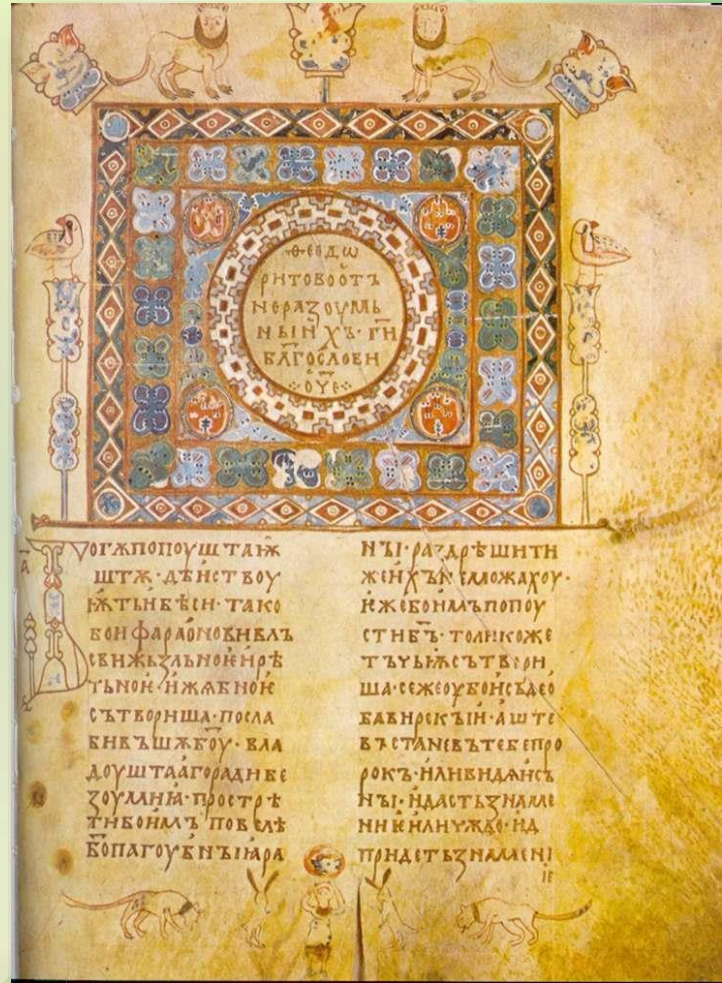 Ѳеѡдѡ
ритовоотъ
неразоумь
ныихъ· г҃и
бл҃гослови
о҃ч҃е
огѫпопоуштаѭ
штѫ· дѣиствоу
ѭтьибѣси· тако
боифараоновивлъ
свижьзльноѥирѣ
чьноѥ· ижѧбноѥ
сътвориша· посла
бивъшѫб҃оу· вла
доуштаагорадибе
зоумиꙗ· прострѣ
тибоимъповелѣ
б҃опагоубныиꙗра
ны· раздрѣшити
жеихънеможахоу·
ижебоимъпопоу
стиб҃ъ· толикоже
тъчьѭсътвори
ша· сежеоубоисъдео
бавирекыи· аште
въстаневътебепро
рокъ· иливидѧисъ
ны· идастьзнаме
ниѥиличюдо· ид
придетьзнамени
ѥ